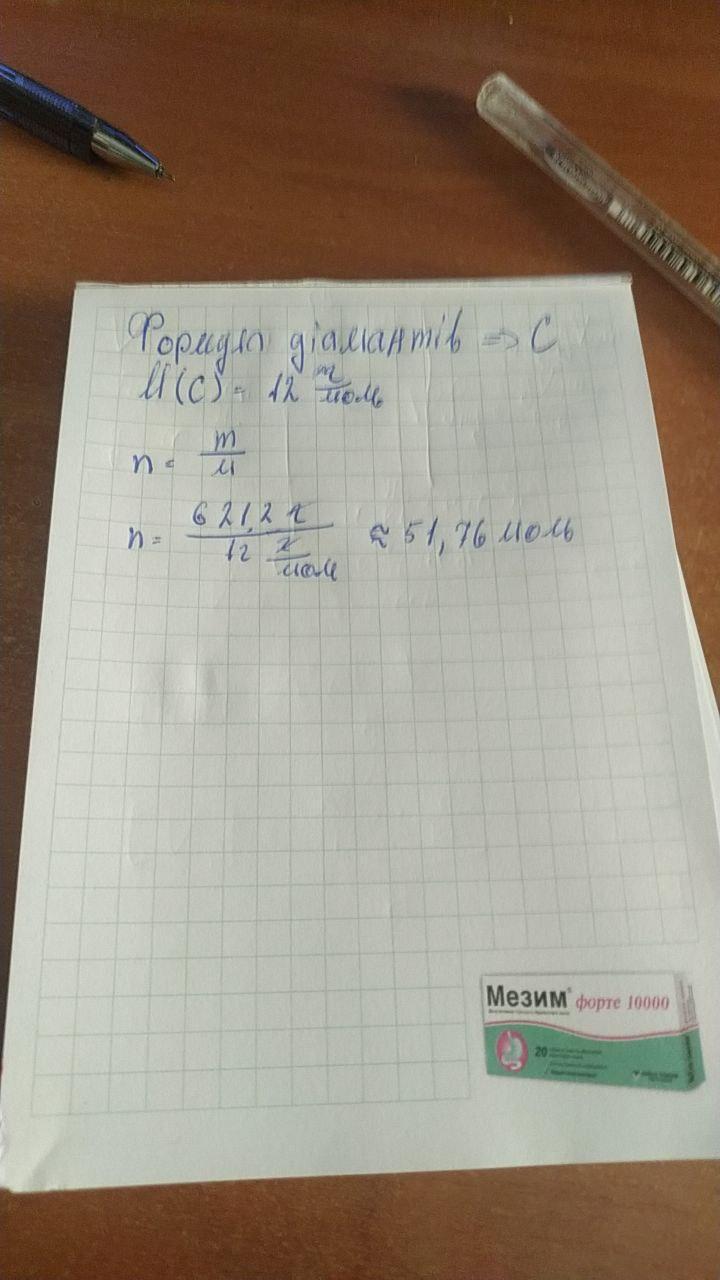 Формула діамантів => C
M(C) = 12 г/моль
n = m/M
n = 621,2 г / 12 г/моль ≈ 51,76 моль
Мезим® форте 10000
20